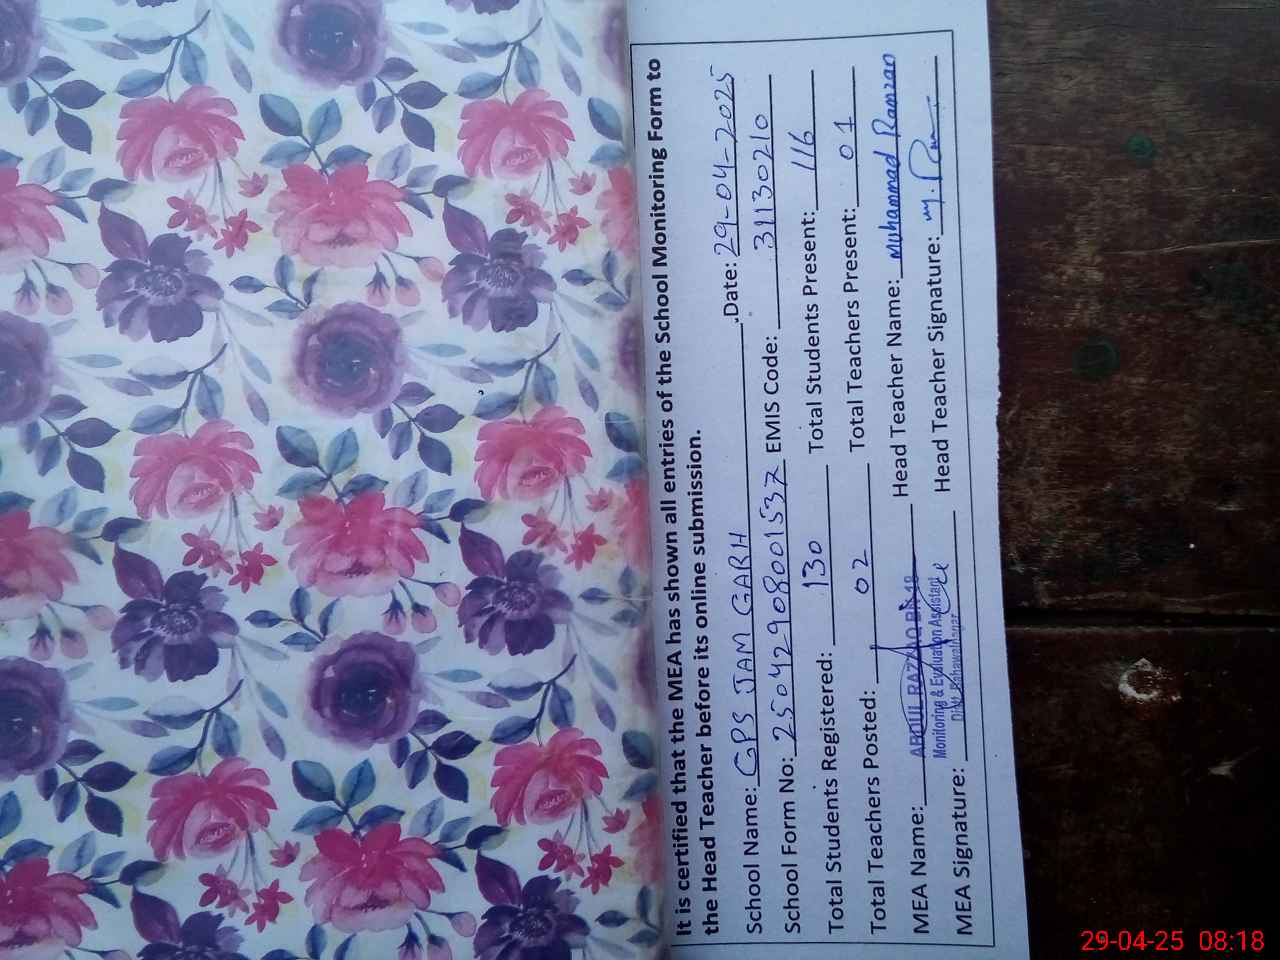 It is certified that the MEA has shown all entries of the School Monitoring Form to
the Head Teacher before its online submission.
School Name: GPS JAM GARH .Date: 29-04-2025
School Form No: 25042908001537 EMIS Code: 31130210
Total Students Registered: 130 Total Students Present: 116
Total Teachers Posted: 02 Total Teachers Present: 01
MEA Name: ABDUL RAZZAQ Head Teacher Name: Muhammad Ramzan
Monitoring & Evaluation Assistant
MEA Signature: Distt Bahawalnagar Head Teacher Signature:
29-04-25 08:18